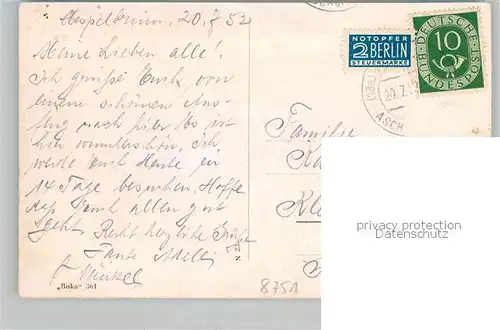 Mespelbrunn, 20.7.52
Meine Lieben alle!
Ich grüße Euch von
einem schönen Aus-
flug nach hier. Es ist
hier wunderschön. Ich
werde Euch Heute in
14 Tage besuchen. Hoffe
daß Euch allen gut
geht. Recht herzliche Grüße
Tante Adele
"Buka" 361
8751
NOTOPFER
2 BERLIN
STEUERMARKE
DEUTSCHE BUNDESPOST
10
20.7.
ASCH
Familie
Kl
privacy protection
Datenschutz